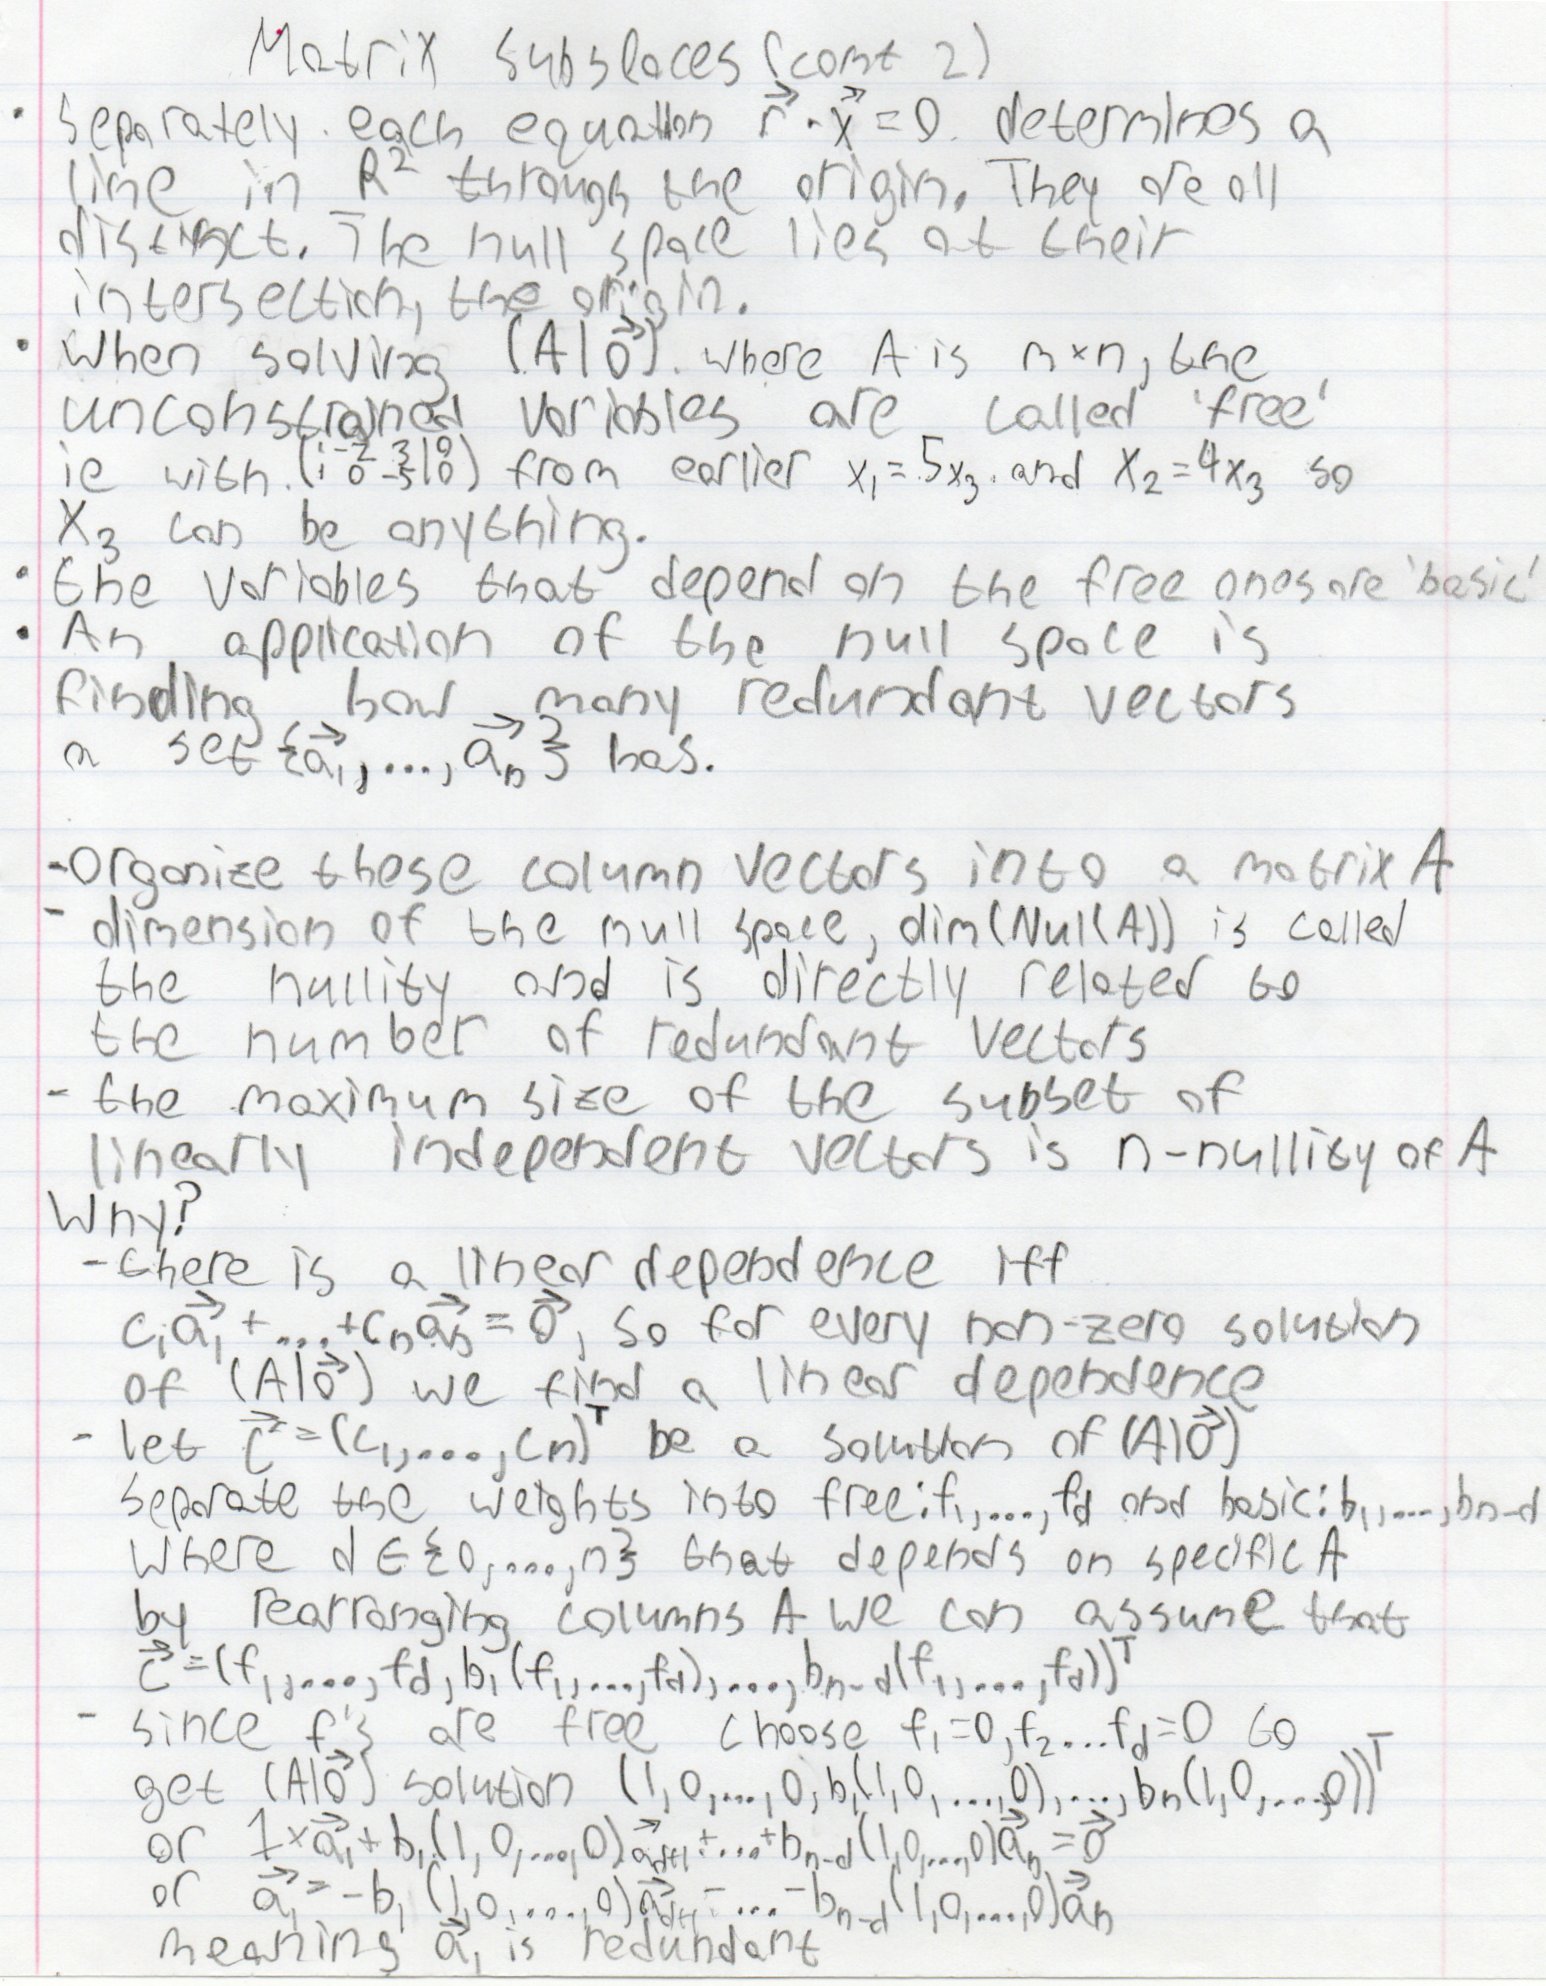 Matrix subspaces (cont 2)
• Separately each equation r⃗·x⃗=0 determines a
line in R² through the origin. They are all
distinct. The null space lies at their
intersection, the origin.
• When solving (A|0⃗) where A is m×n, the
unconstrained variables are called 'free'
ie with (1 -2 3|0 1 0 -5|0) from earlier x₁=5x₃ and x₂=4x₃ so
x₃ can be anything.
• the variables that depend on the free ones are 'basic'
• An application of the null space is
finding how many redundant vectors
a set {a⃗₁,...,a⃗ₙ} has.
-Organize these column vectors into a matrix A
- dimension of the null space, dim(Nul(A)) is called
the nullity and is directly related to
the number of redundant vectors
- the maximum size of the subset of
linearly independent vectors is n-nullity of A
Why?
- there is a linear dependence iff
c₁a⃗₁+...+cₙa⃗ₙ=0⃗, so for every non-zero solution
of (A|0⃗) we find a linear dependence
- let c⃗=(c₁,...,cₙ)ᵀ be a solution of (A|0⃗)
separate the weights into free:f₁,...,f_d and basic:b₁,...,b_n-d
where d∈{0,...,n} that depends on specific A
by rearranging columns A we can assume that
c⃗=(f₁,...,f_d,b₁(f₁,...,f_d),...,b_n-d(f₁,...,f_d))ᵀ
- since f's are free choose f₁=0,f₂...f_d=0 to
get (A|0⃗) solution (1,0,...,0,b₁(1,0,...,0),...,bₙ(1,0,...,0))ᵀ
or 1×a⃗₁+b₁(1,0,...,0)a⃗_d+1+...+b_n-d(1,0,...,0)a⃗ₙ=0⃗
or a⃗₁=-b₁(1,0,...,0)a⃗_d+1-...-b_n-d(1,0,...,0)a⃗ₙ
meaning a⃗₁ is redundant